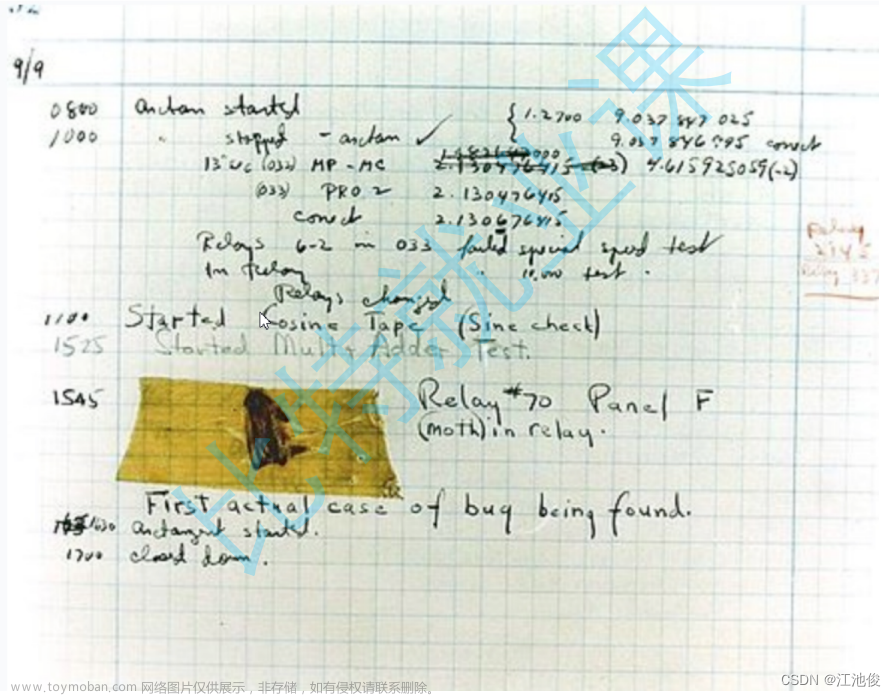 9/9
0800 arctan started { 1.2700 9.037 847 025
1000 " stopped - arctan ✓ 9.037 846 995 correct
13"uc (032) MP - MC 2.130476415 (-3) 4.615925059(-2)
(033) PRO 2 2.130476415
correct 2.130676415
Relays 6-2 in 033 failed special speed test
In relay " 11.000 test.
Relay
Relays changed
1100 Started Cosine Tape (Sine check)
1525 Started Mult+Adder Test.
1545 Relay #70 Panel F
(moth) in relay.
First actual case of bug being found.
1630 arctangent started.
1700 closed down.
比特就业课
www.toymoban.com 网络图片仅供展示，非存储，如有侵权请联系删除。
CSDN @江池俊